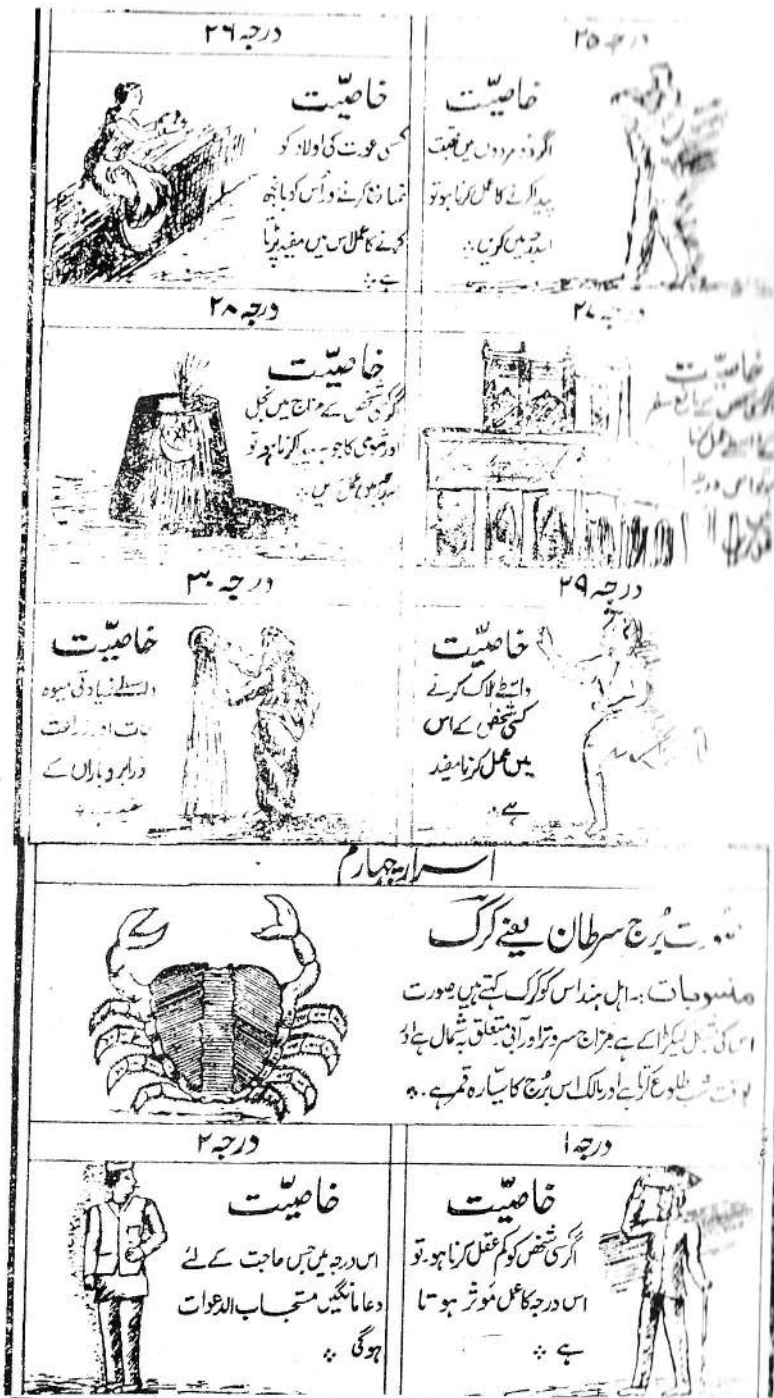 درجہ ۲۵
خاصیّت
اگر دو مردوں میں
پیدا کرنے کا عمل کرنا ہو تو
میں کریں ⁘
درجہ ۲۶
خاصیّت
کسی عورت کی اولاد کو
ضائع کرنے و اُس کو بانجھ
کرنے کا عمل اس میں مفید پڑتا
ہے ⁘
درجہ ۲۷
خاصیّت
سفر
عمل کرنا
اس درجہ
درجہ ۲۸
خاصیّت
شخص کے مزاج میں بخل
اور شومی کا پیدا کرنا ہو تو
عمل میں ⁘
درجہ ۲۹
خاصیّت
واسطے ہلاک کرنے
کسی شخص کے اس
میں عمل کرنا مفید
ہے ⁘
درجہ ۳۰
خاصیّت
واسطے زیادتی میوہ
جات اور زراعت
و ابر و باراں کے
اسرار چہارم
صورت بُرج سرطان یعنے کرک
منسوبات :۔ اہل ہند اس کو کرک کہتے ہیں صورت
اس کی شکل کیکڑا کے ہے مزاج سرد تر اور آبی متعلق بہ شمال ہے اور
بوقت شب طلوع کرتا ہے اور مالک اس بُرج کا سیّارہ قمر ہے ⁘
درجہ ۱
خاصیّت
اگر کسی شخص کو کم عقل کرنا ہو۔ تو
اس درجہ کا عمل مؤثر ہوتا
ہے ⁘
درجہ ۲
خاصیّت
اس درجہ میں جس حاجت کے لئے
دعا مانگیں مستجاب الدعوات
ہوگی ⁘